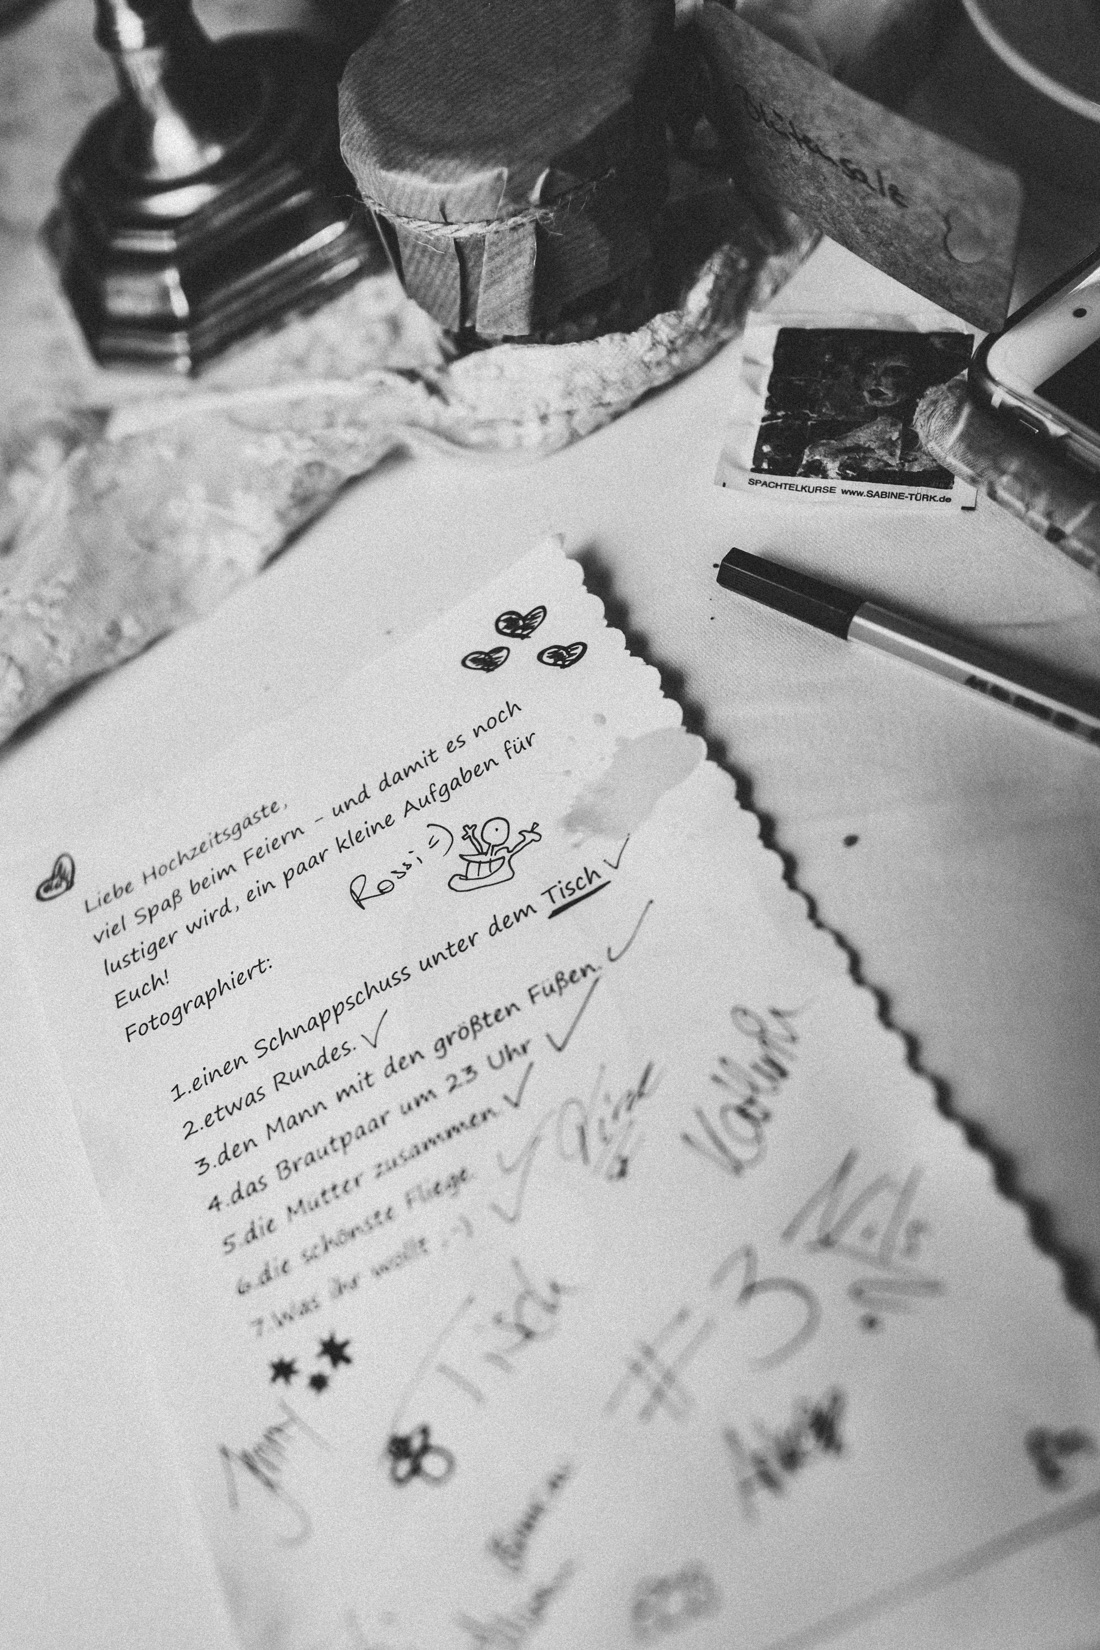 Blütensalz
SPACHTELKURSE www.SABINE-TÜRK.de
Liebe Hochzeitsgäste,
viel Spaß beim Feiern - und damit es noch
lustiger wird, ein paar kleine Aufgaben für
Euch!
Rossi =)
Fotographiert:
1.einen Schnappschuss unter dem Tisch
2.etwas Rundes.
3.den Mann mit den größten Füßen.
4.das Brautpaar um 23 Uhr
5.die Mutter zusammen.
6.die schönste Fliege.
7.Was ihr wollt ;-)
Tisch
#3
Nils
Jenny